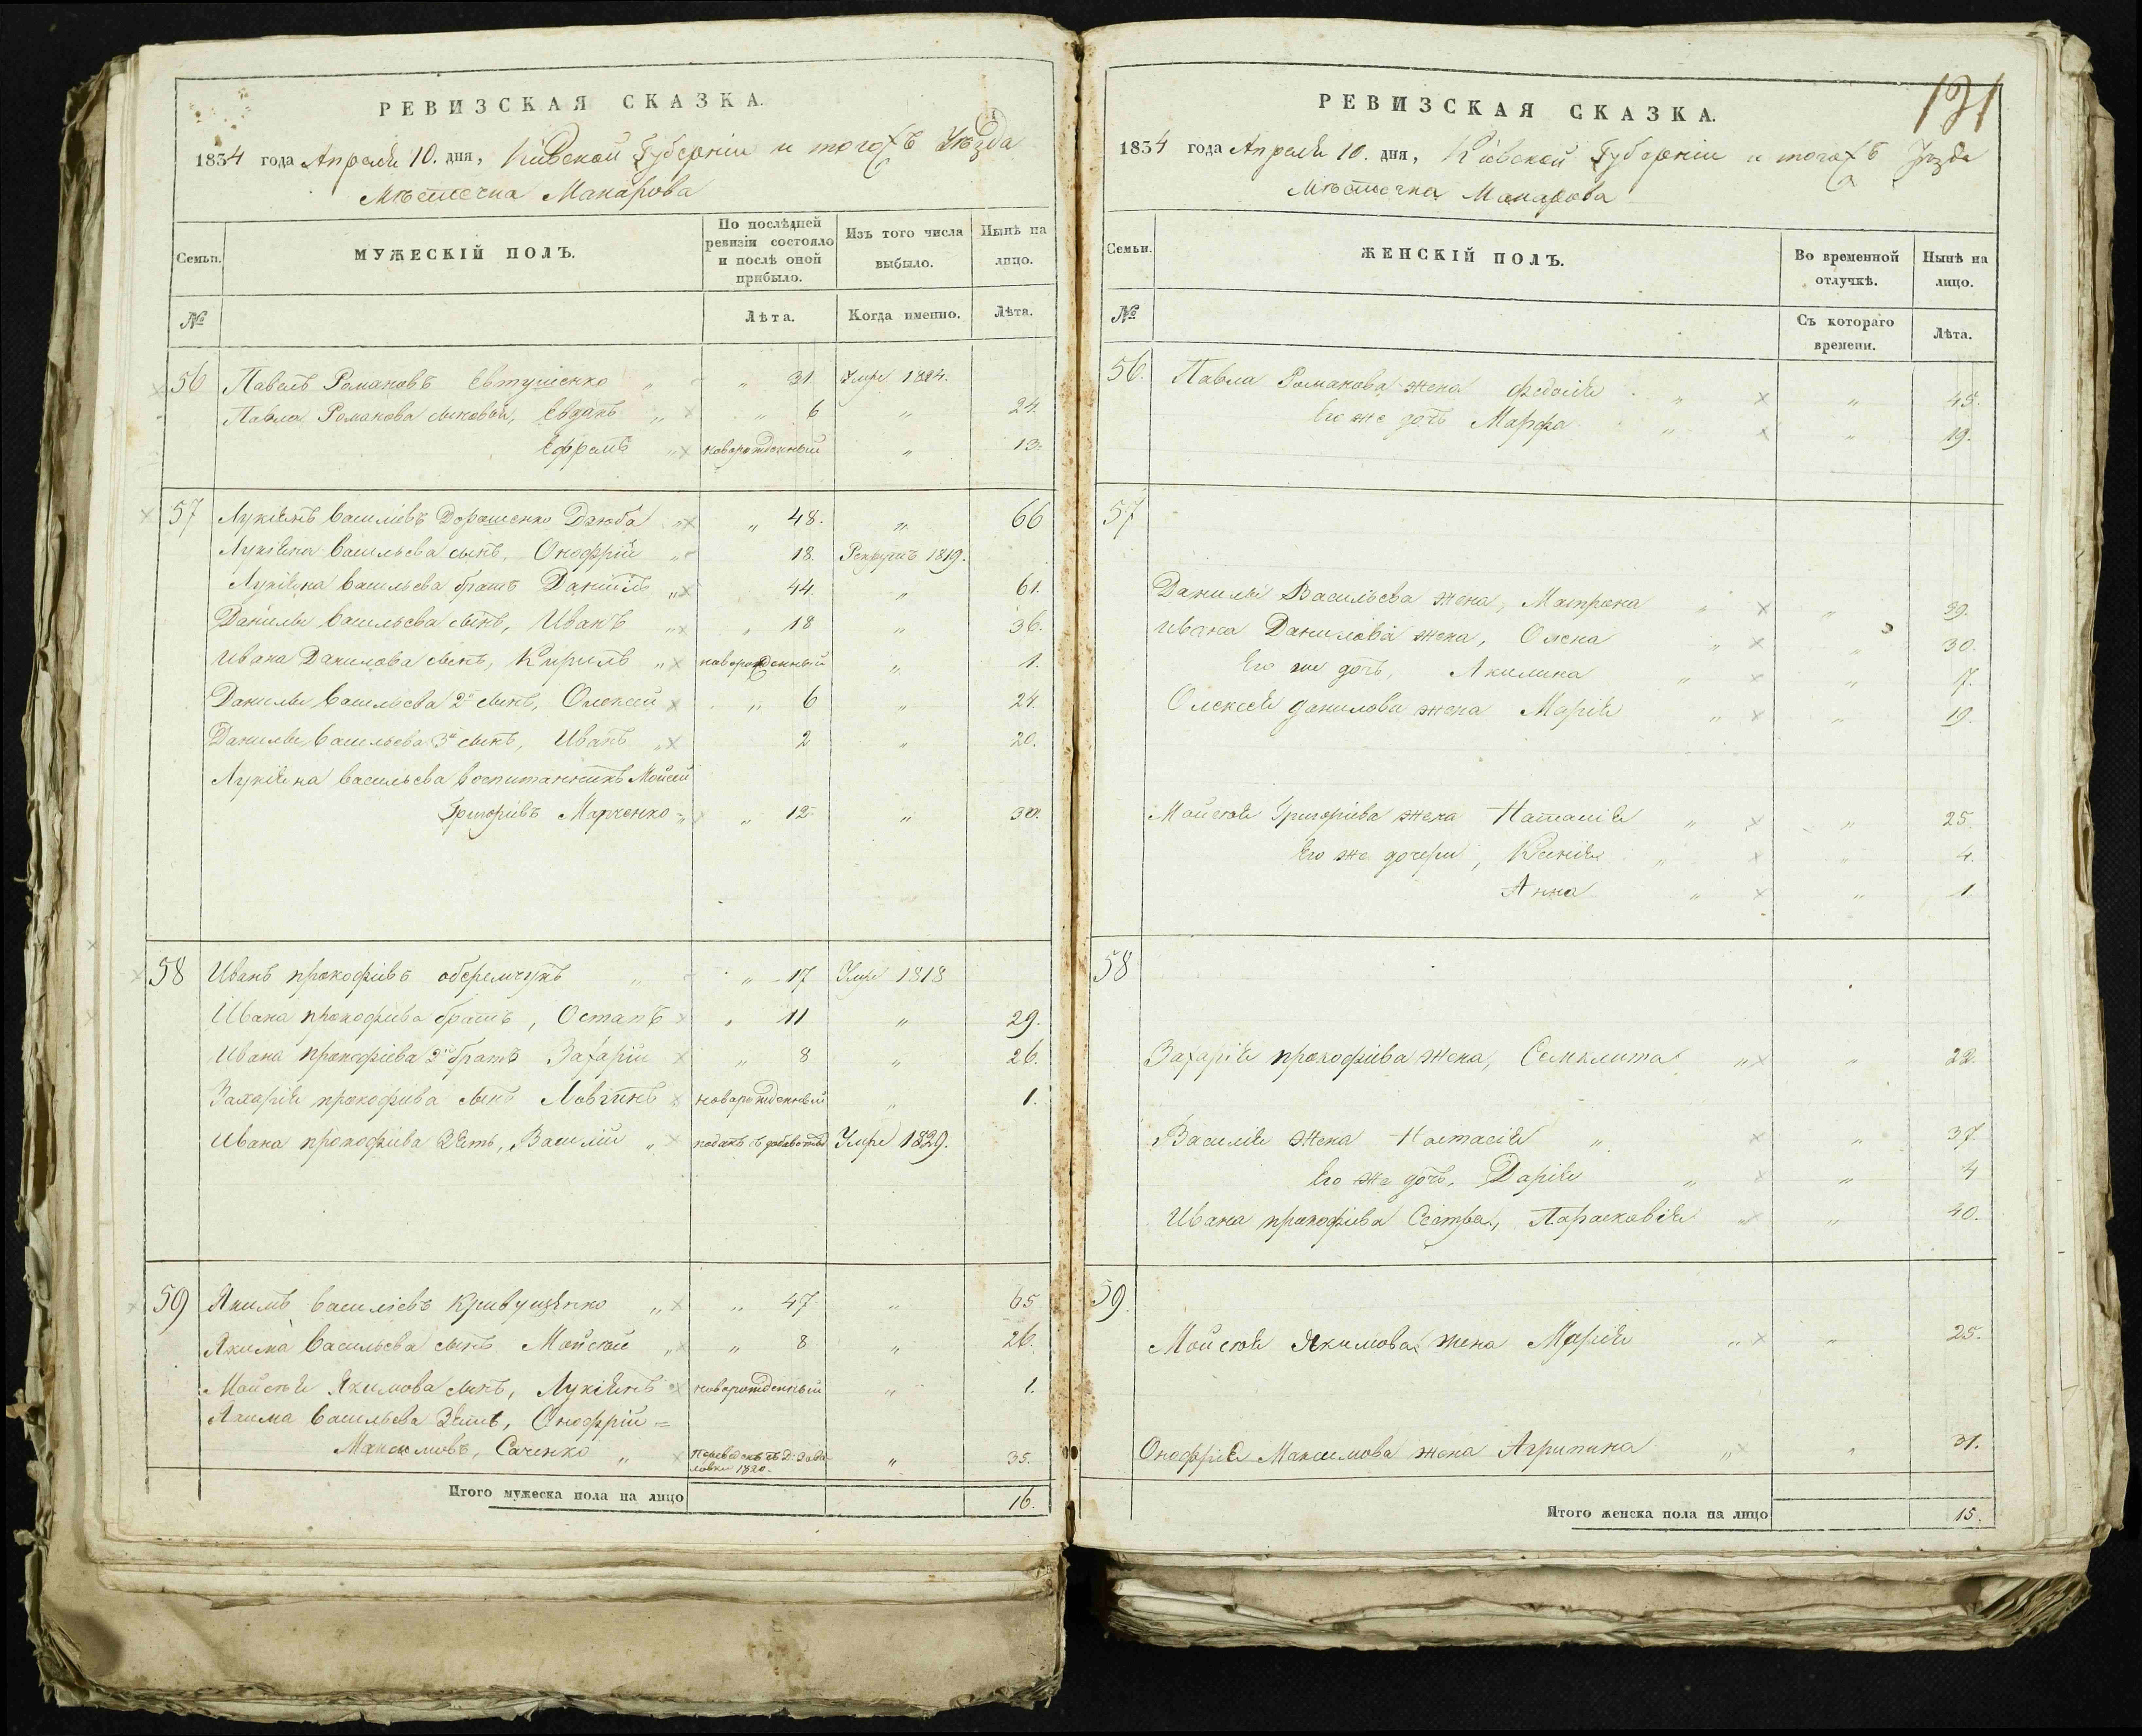 РЕВИЗСКАЯ СКАЗКА.
1834 года Апреля 10. дня, Кіевской Губерніи и тогожъ Уѣзда
Мѣстечка Макарова
Семьи. МУЖЕСКІЙ ПОЛЪ. По послѣдней ревизіи состояло и послѣ оной прибыло. Изъ того числа выбыло. Нынѣ на лицо.
№ Лѣта. Когда именно. Лѣта.
56 Павелъ Романовъ Евтушенко „ „ 31. Умре 1824.
Павла Романова сыновья, Евдокъ „ × „ 6 „ 24.
Ефремъ „ × новорожденный „ 13.
57 Лукіянъ Василіевъ Дорошенко Дзюба „ × „ 48. „ 66
Лукіяна Васильева сынъ, Онофрій „ 18. Рекрутъ 1819.
Лукіяна Васильева братъ Даніилъ „ × 44. „ 61.
Данилы Васильева сынъ, Иванъ „ × „ 18 „ 36.
Ивана Данилова сынъ, Кирилъ „ × новорожденный „ 1.
Данилы Васильева 2й сынъ, Олексей × „ 6 „ 24.
Данилы Васильева 3й сынъ, Иванъ „ × 2 „ 20.
Лукіяна Васильева воспитанникъ Мойсей
Григоріевъ Марченко „ × „ 12 „ 30.
58 Иванъ прокофіевъ оберемчукъ „ „ 17 Умре 1818
Ивана прокофіева братъ, Остапъ × „ 11 „ 29.
Ивана прокофіева 2й братъ Захарій × „ 8 „ 26.
Захарія прокофіева сынъ Ловгинъ × новорожденный „ 1.
Ивана прокофіева Зять, Василій „ × Умре 1829.
59 Якимъ Василіевъ Кривущенко „ × „ 47 „ 65
Якима Васильева сынъ Мойсей „ × „ 8 „ 26.
Мойсея Якимова сынъ, Лукіянъ × новорожденный „ 1.
Якима Васильева Зять, Онофрій =
Максимовъ, Саченко „ × Переведенъ съ Д: 1820. „ 35.
Итого мужеска пола на лицо 16.
131
РЕВИЗСКАЯ СКАЗКА.
1834 года Апреля 10. дня, Кіевской Губерніи и тогожъ Уѣзда
Мѣстечка Макарова
Семьи. ЖЕНСКІЙ ПОЛЪ. Во временной отлучкѣ. Нынѣ на лицо.
№ Съ котораго времени. Лѣта.
56. Павла Романова жена Федосія „ × „ 45.
Его же дочь Марфа „ × „ 19.
57
Данилы Васильева жена, Матрона „ × „ 39.
Ивана Данилова жена, Олена „ × „ 30.
Его же дочь, Акилина „ × „ 7.
Олексея данилова жена Марія „ × „ 19.
Мойсея Григоріева жена Наталія „ × „ 25.
Его же дочери, Ксенія „ × „ 4.
Анна „ × „ 1.
58
Захарія прокофіева жена, Синклита „ × „ 22.
Василія жена Настасія „ × „ 37.
Его же дочь, Дарія „ × „ 4
Ивана прокофіева Сестра, Парасковія „ × „ 40.
59.
Мойсея Якимова жена Марія „ × „ 25.
Онофрія Максимова жена Агрипина „ × „ 31.
Итого женска пола на лицо 15.